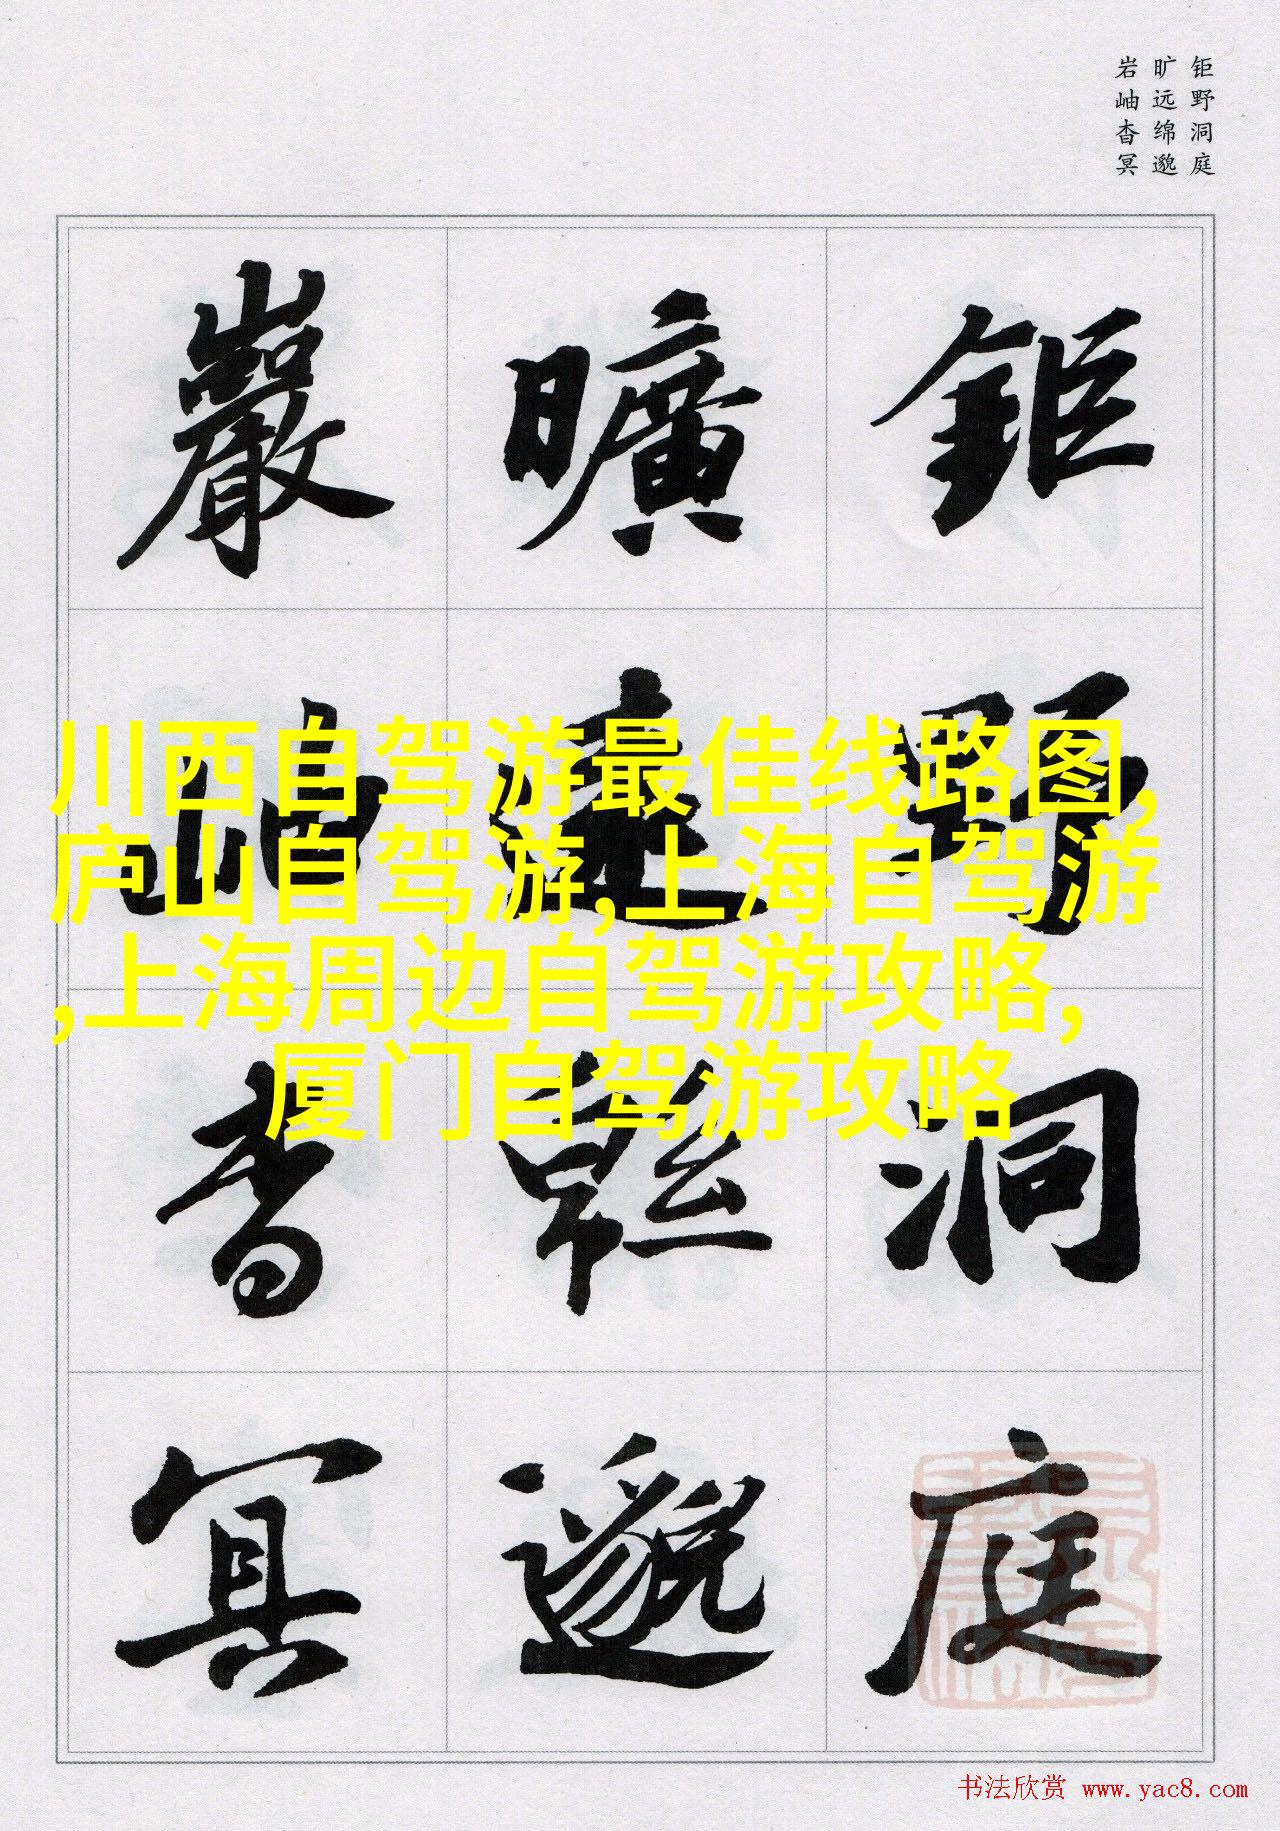 钜野洞庭
旷远绵邈
岩岫杳冥
鉅野洞庭
曠遠緜邈
巖岫杳冥
川西自驾游最佳线路图,
庐山自驾游,上海自驾游
,上海周边自驾游攻略,
厦门自驾游攻略
书法欣赏 www.yac8.com